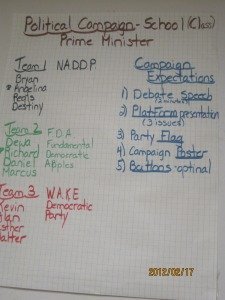 Political Campaign - School (Class)
Prime Minister
Team 1 NADDP
Bryan
Angelina
Regis
Destiny
Team 2 F.D.A.
Dewa Fundamental
Richard Democratic
Daniel Apples
Marcus
Team 3 W.A.K.E.
Kevin Democratic
Alan Party
Esther
Walter
Campaign
Expectations
1) Debate Speech
(2 minutes)
2) Platform presentation
(3 issues)
3) Party Flag
4) Campaign Poster
5) Buttons - optinal
2012/02/17